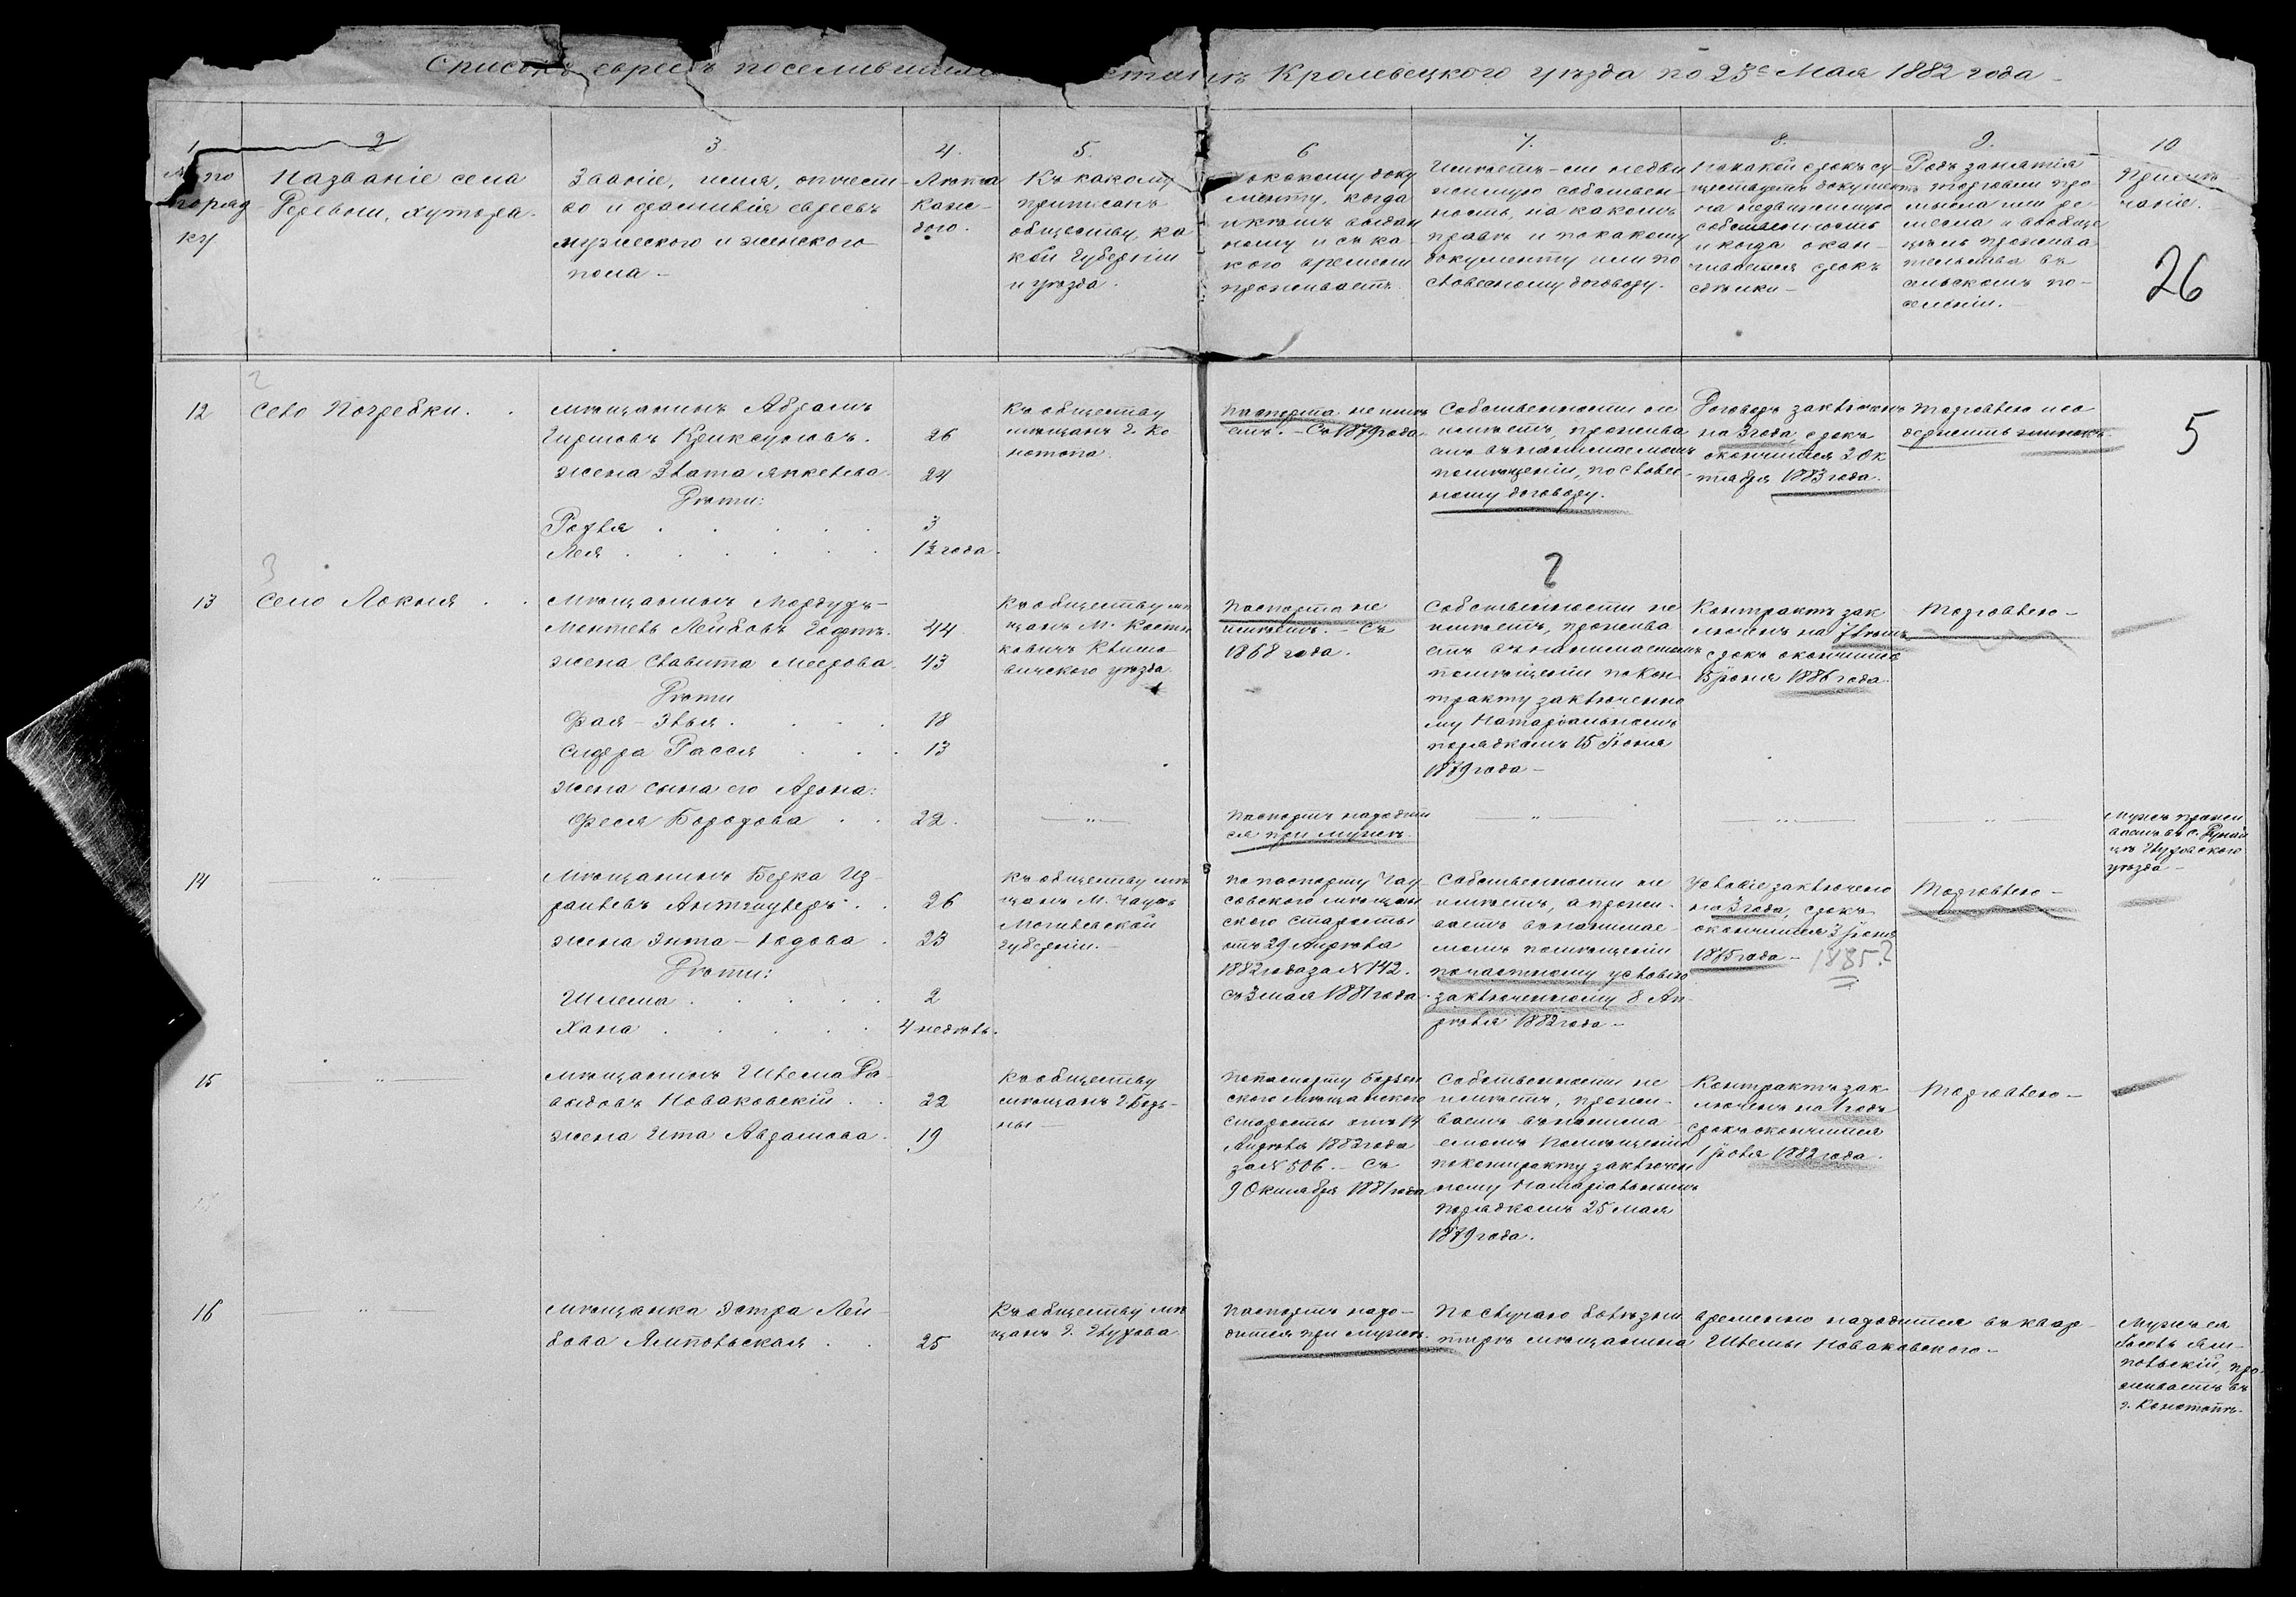 Списокъ евреевъ поселившихся Кролевецкаго уѣзда по 25е Мая 1882 года
1
2
3.
4.
5.
6
7.
8.
9.
10
№ по
поряд
ку
Названіе села
Деревни, хутора.
Званіе, имя, отчест-
во и фамилія евреевъ
мужескаго и женскаго
пола –
Лѣта
каж-
дого.
Къ какому
приписанъ
обществу, ка
кой губерніи
и уѣзда.
По какому доку
менту, когда
и кѣмъ выдан
ному и съ ка-
кого времени
проживаетъ
Имѣетъ-ли недви
жимую собствен-
ность, на какомъ
правѣ и по какому
документу или по
словесному договору.
На какой срокъ су
ществуетъ документъ
на недвижимую
собственность
и когда окан-
чивается срокъ
сдѣлки –
Родъ занятія
торговли про
мысла или ре
месла и вообще
цѣль прожива
тельства въ
сельскомъ по-
селеніи. –
Примѣ
чаніе.
26
2
12
Село Погребки. .
мѣщанинъ Абрамъ
Гиршовъ Криксуновъ. 26
жена Злата Янкелева. 24
Дѣти:
Рохля . . . . . 3
Лея . . . . . . 1½ года.
Къ обществу
мѣщанъ г. Ко
нотопа.
Паспорта не имѣ
етъ. – Съ 1879 года.
Собственности не
имѣетъ, прожива
етъ въ нанимаемомъ
помѣщеніи, по словес-
ному договору.
Договоръ заключенъ
на 3 года, срокъ
окончится 2 Ок
тября 1883 года.
Торговлею и со
держитъ шинокъ
5
3
?
13
Село Локня . .
Мѣщанинъ Мордухъ-
Ментель Лейбовъ 44
жена Славита Меерова. 43
Дѣти
Фая-Элья . . . . 18
Сидера Рассея . . . 13
жена сына его Арона:
Фрейда Борохова . . 22.
Къ обществу мѣ
щанъ М. Костю
ковичъ Климо
вичскаго уѣзда
Паспорта не
имѣетъ. – Съ
1868 года.
Собственности не
имѣетъ, прожива
етъ въ нанимаемомъ
помѣщеніи по кон
тракту заключенно
му Натаріальнымъ
порядкомъ 15 Іюня
1879 года –
Контрактъ зак
люченъ на 7 лѣтъ
срокъ окончится
15 Іюня 1886 года.
Торговлею –
— „ —
Паспортъ находит
ся при мужѣ
— „ —
— „ —
— „ —
Мужъ прожи
ваетъ въ с.
Глуховскаго
уѣзда –
14
— „ —
Мѣщанинъ Берка Из-
раилевъ . . 26
жена Энта-Юдова . 23
Дѣти:
Шлема . . . . . 2
Хана . . . . . 4 недѣль.
Къ обществу мѣ
щанъ М. Чаусъ
Могилевской
губерніи. –
По паспорту Чау
совскаго мѣщан
скаго Старосты
отъ 29 Апрѣля
1882 года за № 142.
съ 3 мая 1881 года.
Собственности не
имѣетъ, а прожи-
ваетъ въ нанимае-
момъ помѣщеніи
по частному условію
заключенному 8 Ап-
рѣля 1882 года –
Условіе заключено
на 3 года, срокъ
окончится 3 Іюня
1885 года – 1885?
Торговлею –
15
— „ —
мѣщанинъ Шлема Да-
видовъ Новаковскій . . 22
жена Ита Абрамова. 19
Къ обществу
мѣщанъ г. Борз-
ны –
По паспорту Борзен
скаго мѣщанскаго
старосты отъ 14
Апрѣля 1882 года
за № 506. – Съ
9 Октября 1881 года
Собственности не
имѣетъ, прожи-
ваетъ въ нанима-
емомъ помѣщеніи
по контракту заключен
ному Натаріальнымъ
порядкомъ 25 мая
1879 года.
Контрактъ зак
люченъ на 1 годъ
срокъ окончится
1 Іюля 1882 года.
Торговлею –
16
— „ —
мѣщанка Эстра Лей-
бова Ямпольская . . 25
Къ обществу мѣ
щанъ г. Глухова
Паспортъ нахо-
дится при мужѣ.
По случаю болѣзни временно находится въ квар-
тирѣ мѣщанина Шлемы Новаковскаго –
Мужъ ея
Ям-
польскій, про
живаетъ въ
г. Конотопѣ –